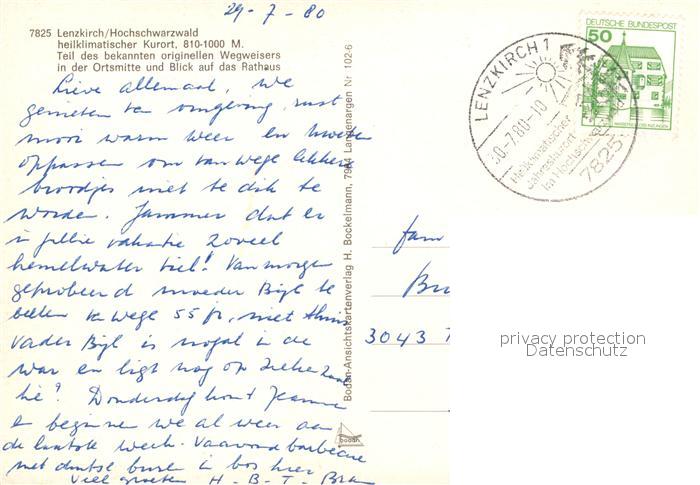 29-7-80
7825 Lenzkirch/Hochschwarzwald
heilklimatischer Kurort, 810-1000 M.
Teil des bekannten originellen Wegweisers
in der Ortsmitte und Blick auf das Rathaus
Lieve allemaal, We
genieten van omgeving, rust
mooi warm weer en moeten
oppassen om vanwege lekkere
broodjes niet te dik te
worden. Jammer dat er
in jullie vakantie zoveel
hemelwater viel! Vanmorgen
geprobeerd moeder Bijl te
bellen vanwege 55 jr, niet thuis
vader Bijl is nogal in de
war en ligt nog op
hé? Donderdag komt Jeanne
en beginnen we al weer aan
de laatste week. Vanavond barbecue
met duitse buren in bos hier
Viel groeten H - B - T - Bram
Bodan-Ansichtskartenverlag H. Bockelmann, 7994 Langenargen Nr 1026
bodan
fam
3043
DEUTSCHE BUNDESPOST
50
LENZKIRCH 1
30.-7.80-10
Heilklimatischer
Jahreskurort
im Hochschwarzwald
7825
privacy protection
Datenschutz